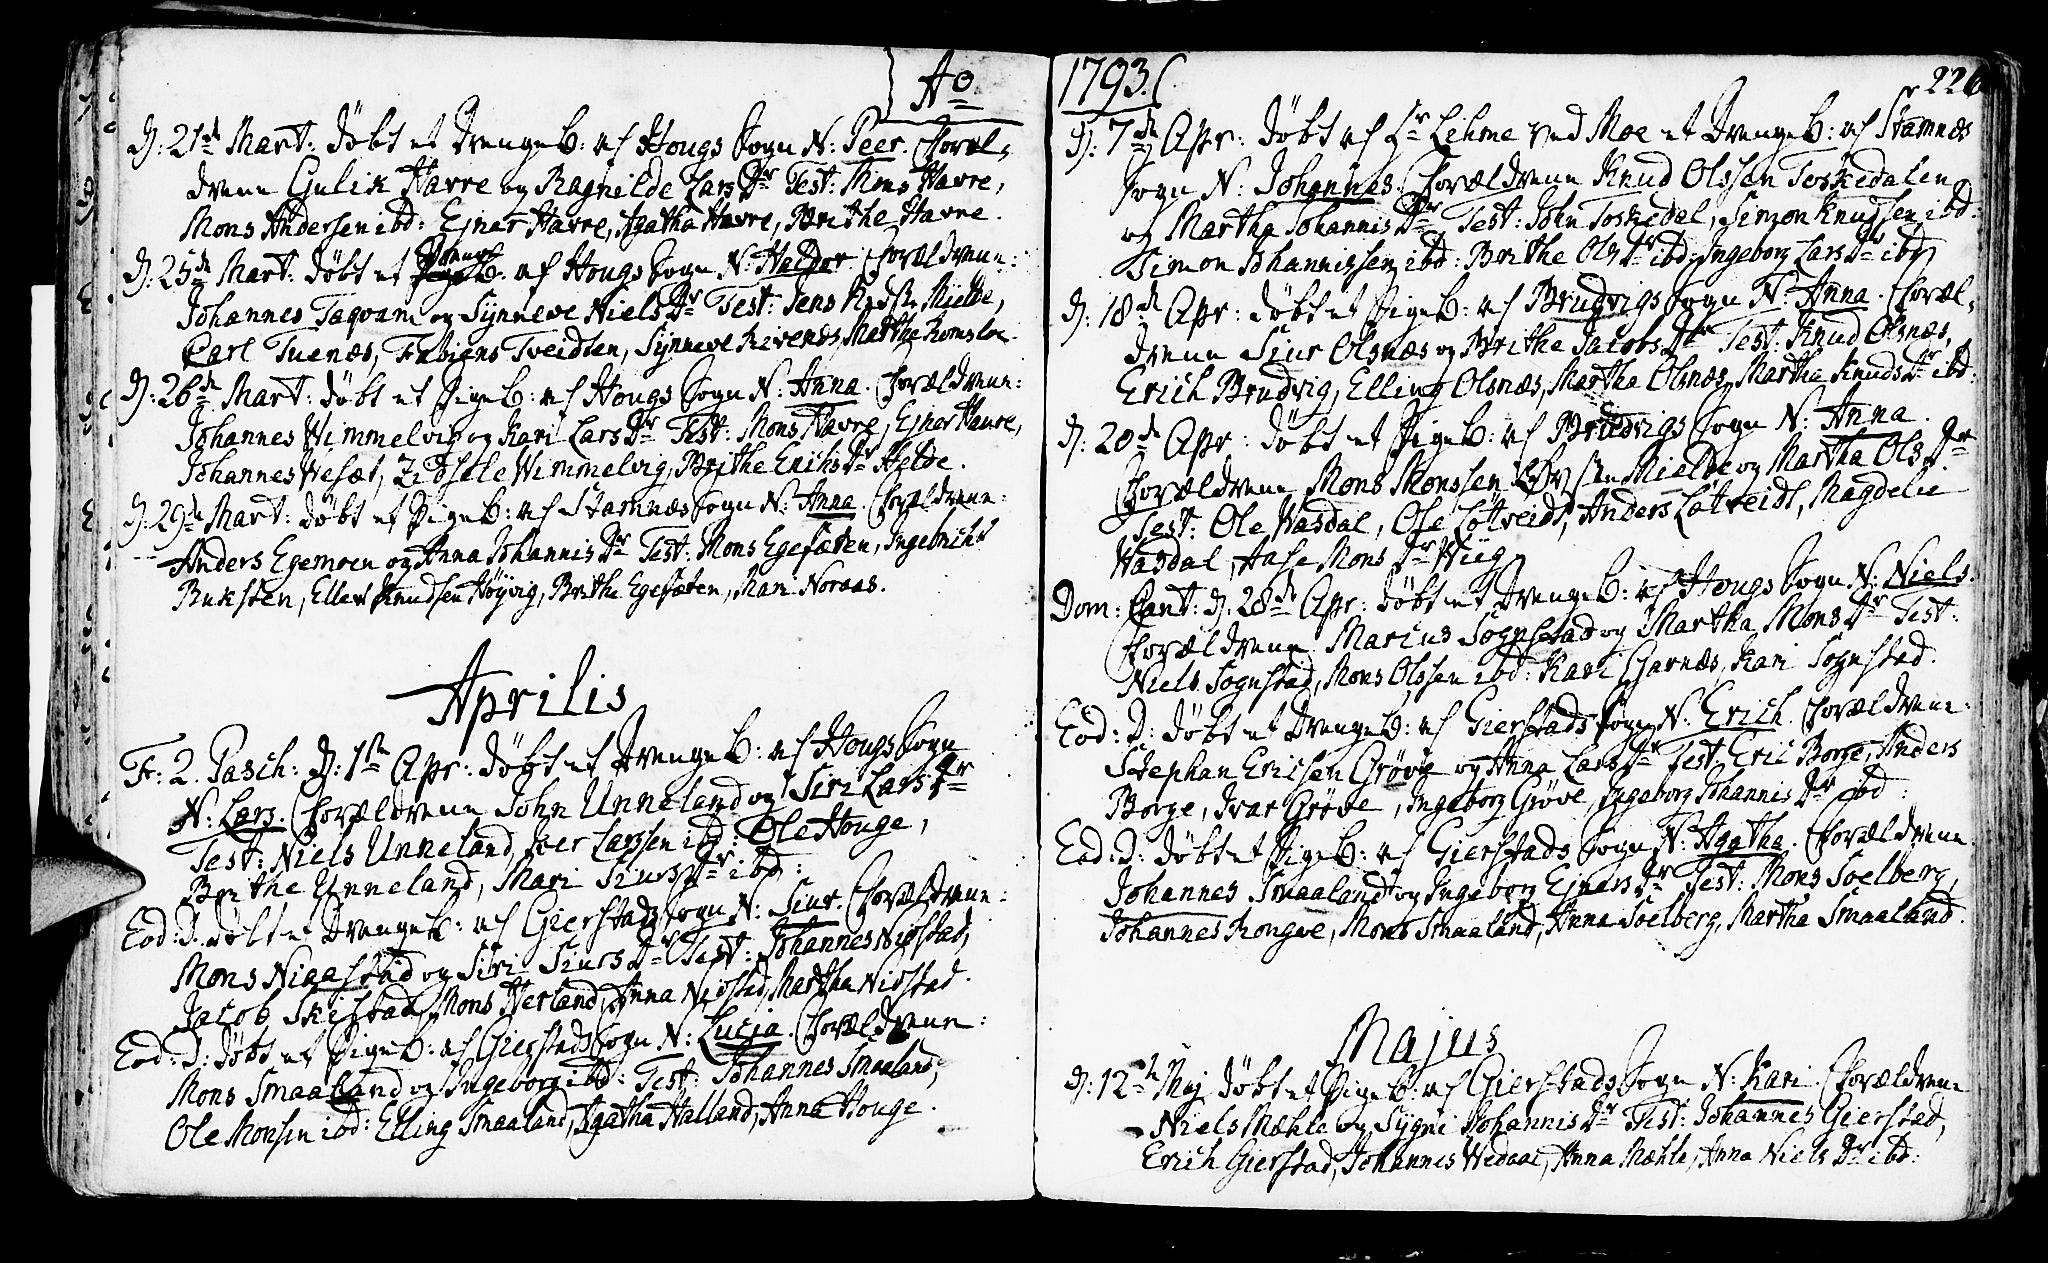 Ao
D: 21de Mart: døbt et DrengeB: af Hougs Sogn N: Peer. Foræl-
drene Gulik Havre og Ragnilde Lars Dr Test: Mons Havre,
Mons Andersen ibd: Ejnar Havre, Agatha Havre, Brithe Havre.
D: 25de Mart: døbt et DrengeB: af Hougs Sogn N: Haldor. Forældrene:
Johannes Taqvam og Synneve Niels Dr Test: Jens Mielde,
Carl Tuenæs, Fabiens Tveidten, Synneve Revends, Marthe Romsloe.
D: 26de Mart: døbt et PigeB: af Hougs Sogn N: Anna. Forældrene:
Johannes Wimmelvig og Kari Lars Dr Test: Mons Havre, Ejnar Havre,
Johannes Wesæt, Zidsele Wimmelvig, Brithe Erichs Dr Helde.
D: 29de Mart: døbt et PigeB: af Stamnæs Sogn N: Anna. Forældrene:
Anders Egemoen og Anna Johannis Dr Test: Mons Egesæten, Ingebricht
Buksten, Ellert Knudsen Høyvig, Brithe Egesæten, Mari Noraas.
Aprilis
F: 2. Pasch: D: 1ste Apr: døbt et DrengeB: af Hougs Sogn
N: Lars. Forældrene John Unneland og Siri Lars Dr
Test: Niels Unneland, Iver Larssen ibd: Ole Houge,
Brithe Unneland, Mari Siurs Dr ibd:
Eod: D: døbt et DrengeB: af Gierstads Sogn N: Siur. Forældrene:
Mons Nigastad og Siri Siurs Dr Test: Johannes Nidstad,
Jacob Skistad, Mons Herland, Anna Nidstad, Martha Nidstad.
Eod: D: døbt et PigeB: af Gierstads Sogn N: Lucia. Forældrene:
Mons Smaaland og Ingeborg ibd: Test: Johannes Smaaland,
Ole Monsen ibd: Elling Smaaland, Agatha Halland, Anna Houge.
1793.
226
D: 7de Apr: døbt af Hr Lehme ved Moe et DrengeB: af Stamnæs
Sogn N: Johannes. Forældrene Knud Olssen Toskedalen
og Martha Johannis Dr Test: John Toskedal, Simon Knudsen ibd:
Simon Johannissen ibd: Brithe Ols Dr ibd: Ingeborg Lars Dr ibd:
D: 18de Apr: døbt et PigeB: af Brudvigs Sogn N: Anna. Foræl-
drene Siur Olsnæs og Brithe Jacobs Dr Test: Knud Olsnæs,
Erich Brudvig, Elling Olsnæs, Martha Olsnæs, Martha Knuds Dr ibd:
D: 20de Apr: døbt et PigeB: af Brudvigs Sogn N: Anna.
Forældrene Mons Monssen Mielde og Martha Ols Dr
Test: Ole Wasdal, Ole Løtveidt, Anders Løtveidt, Magdelie
Wasdal, Aase Mons Dr Wiig
Dom: Cant: D: 28de Apr: døbt et DrengeB: af Hougs Sogn N: Niels.
Forældrene Marius Sognstad og Martha Mons Dr Test:
Niels Sognstad, Mons Olssen ibd: Kari Garnæs, Kari Sognstad.
Eod: D: døbt et DrengeB: af Gierstads Sogn N: Erich. Forældrene:
Stephan Ericsen Grøve og Anna Lars Dr Test: Eric Borge, Anders
Borge, Ivar Grøve, Ingeborg Grøve, Ingeborg Johannis Dr ibd:
Eod: D: døbt et PigeB: af Gierstads Sogn N: Agatha. Forældrene
Johannes Smaaland og Ingeborg Ejnars Dr Test: Mons Soelberg,
Johannes Rongve, Mons Smaaland, Anna Soelberg, Martha Smaaland.
Majus
D: 12te Maj døbt et PigeB: af Gierstads Sogn N: Kari. Forældrene
Niels Mæhle og Sygni Johannis Dr Test: Johannes Gierstad,
Erich Gierstad, Johannes Wedaae, Anna Mæhle, Anna Niels Dr ibd: